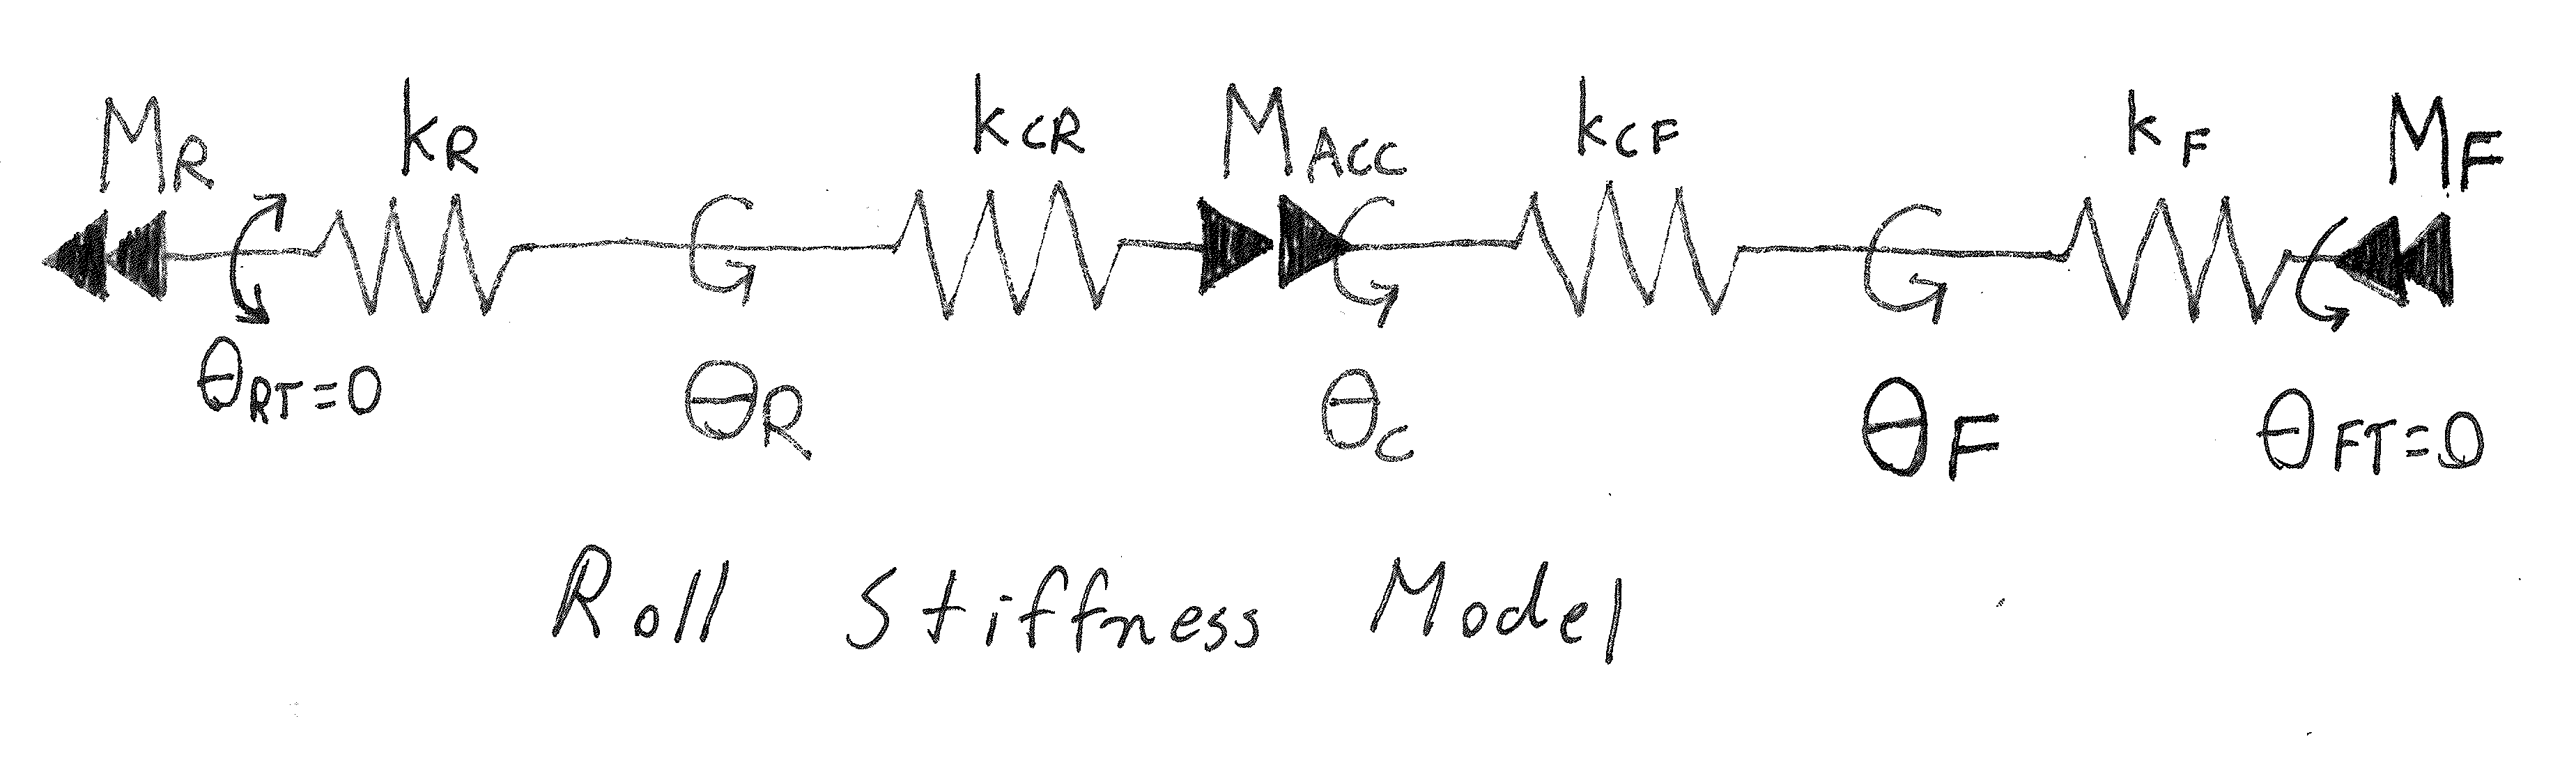 M_R k_R k_CR M_ACC k_CF k_F M_F
θ_RT=0 θ_R θ_C θ_F θ_FT=0
Roll Stiffness Model